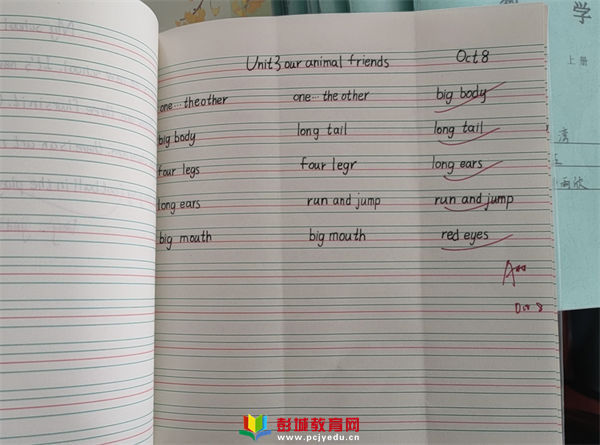 Unit3 our animal friends Oct 8
one...the other one...the other big body
big body long tail long tail
four legs four legr long ears
long ears run and jump run and jump
big mouth big mouth red eyes
A++
学
上册
彭城教育网
www.pcjyedu.cn